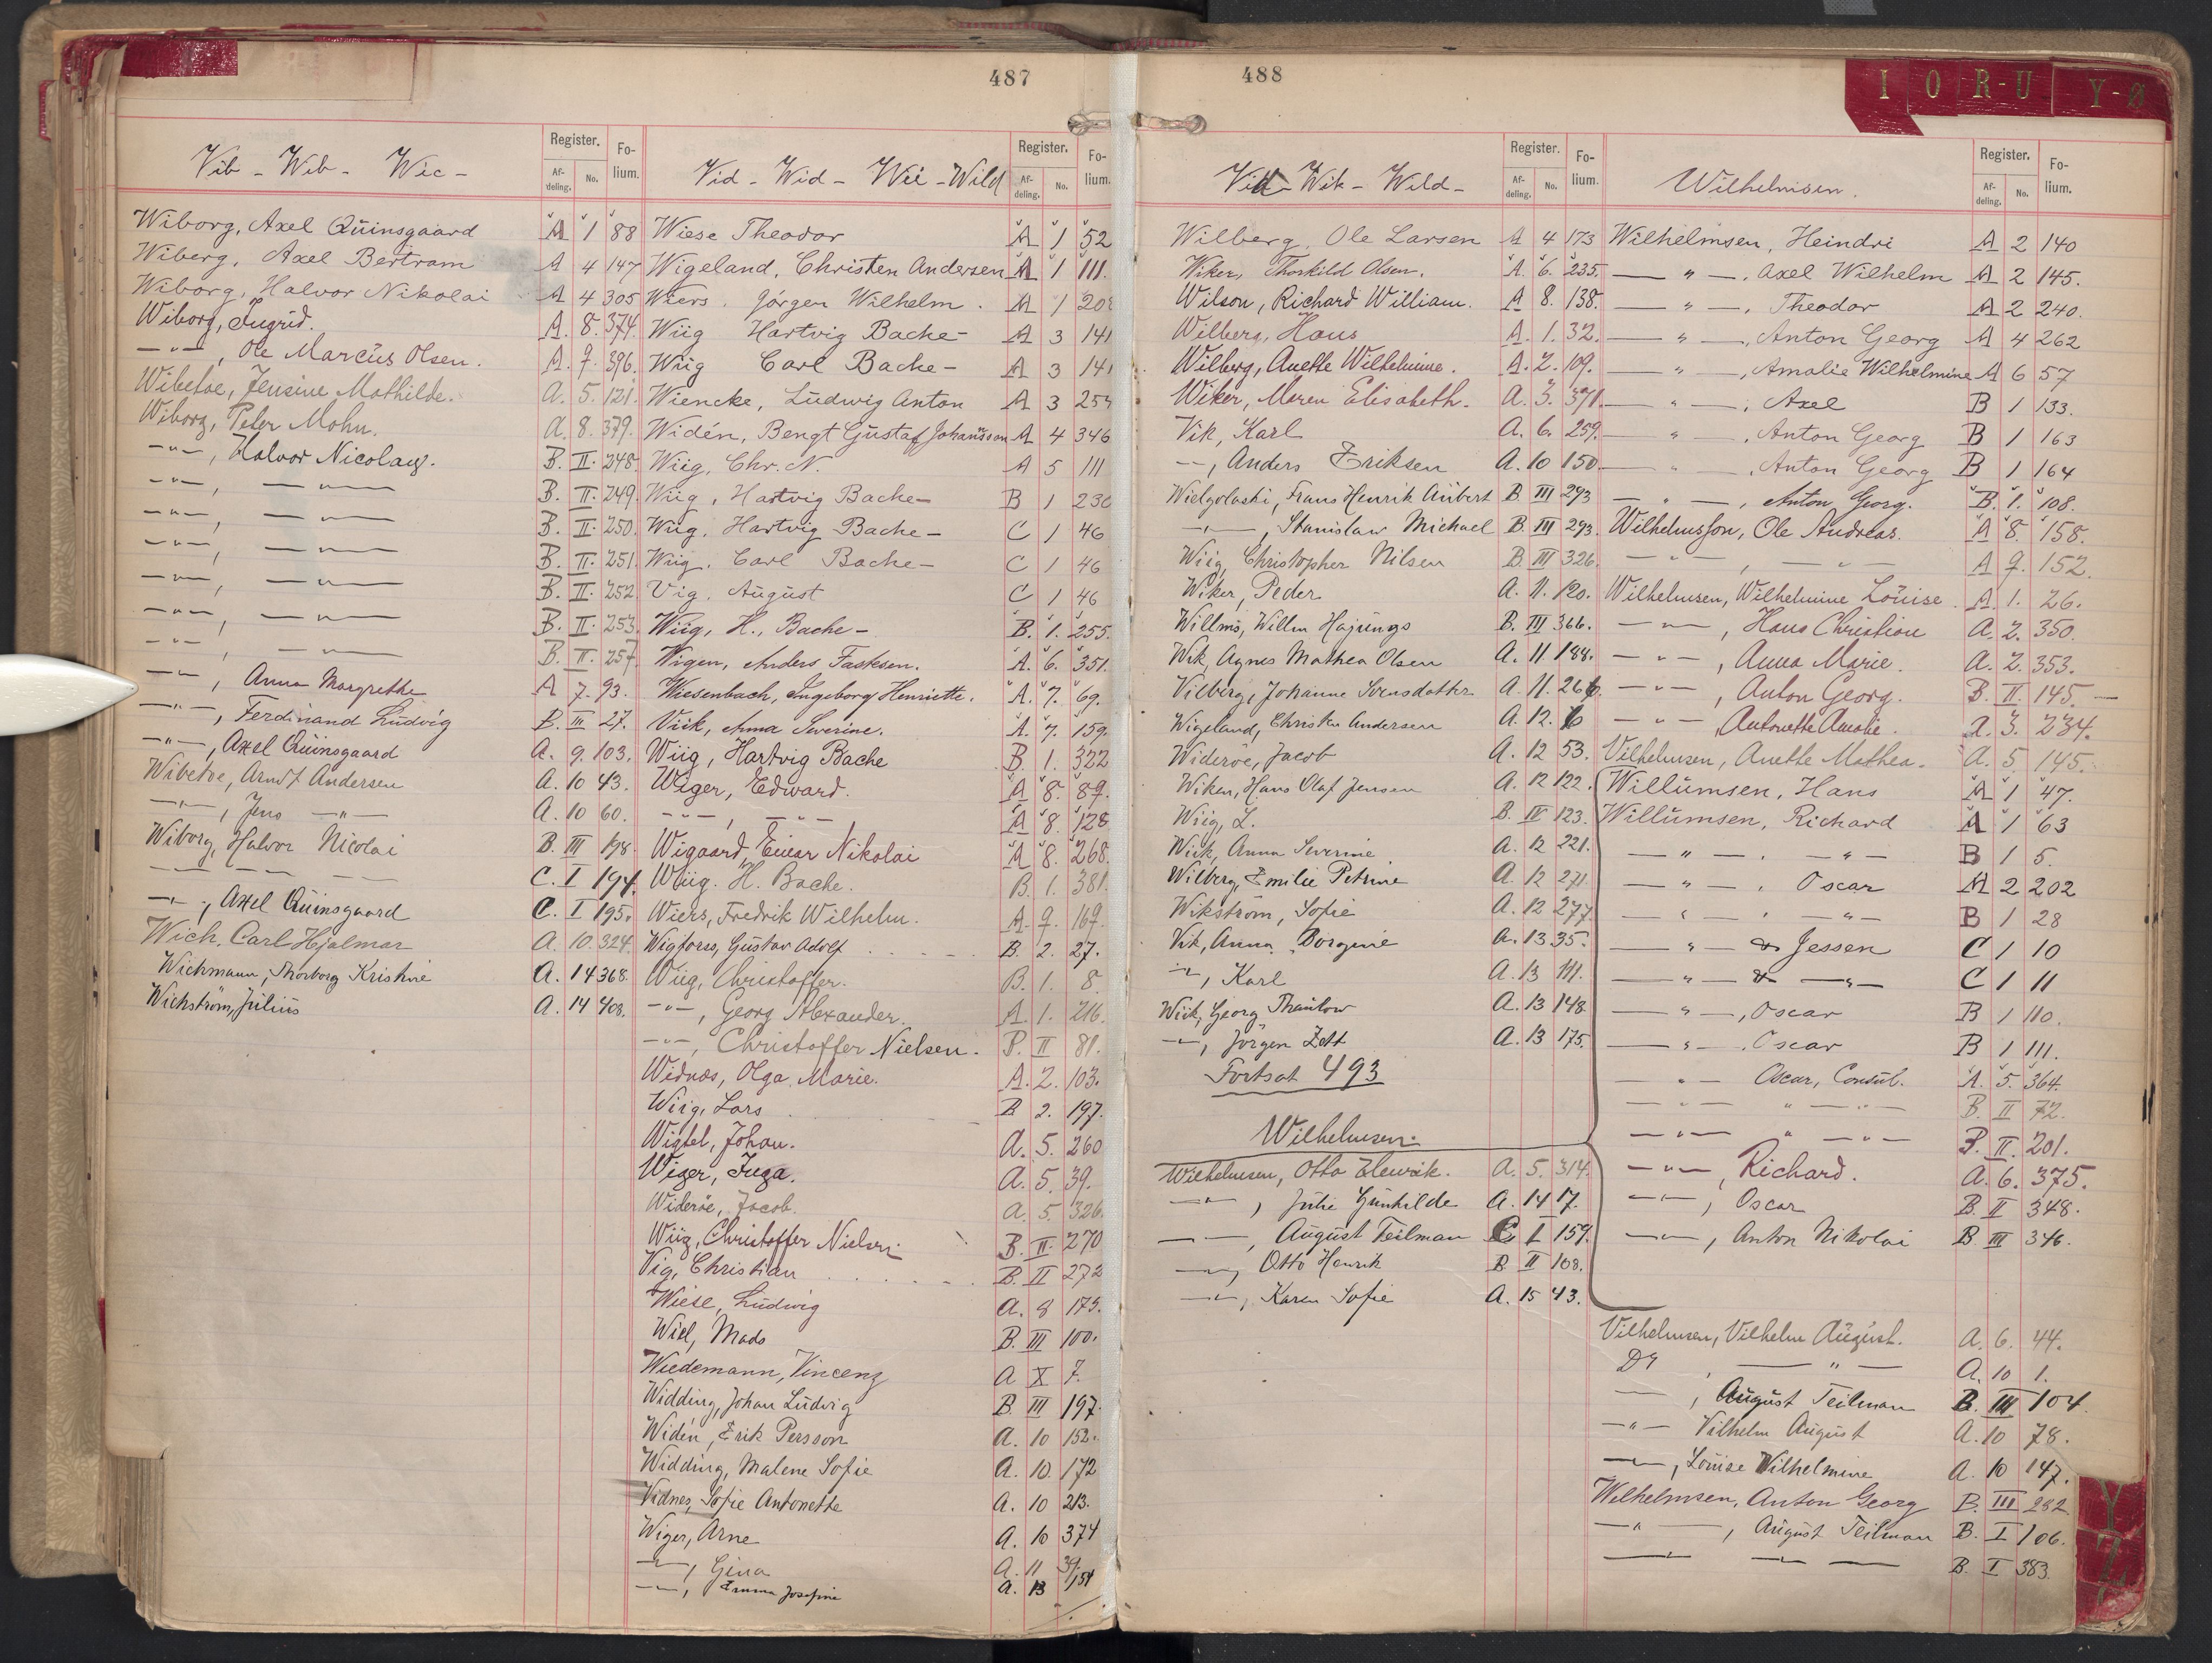 487
Vib - Wib - Wic -
Register.
Af-deling.
No.
Fo-lium.
Wiborg, Axel Quinsgaard A 1 88
Wiberg, Axel Bertram A 4 147
Wiborg, Halvor Nikolai A 4 305
Wiborg, Ingrid. A. 8. 374.
—"—, Ole Marcus Olsen. A. 9. 396.
Wibetoe, Jensine Mathilde. A. 5. 121.
Wiborg, Peter Mohn. A. 8. 379.
—"—, Halvor Nicolay. B. II. 248.
—"—, —"— B. II. 249.
—"—, —"— B. II. 250.
—"—, —"— B. II. 251.
—"—, —"— B. II. 252
—"—, —"— B. II. 253
—"—, —"— B. II. 257
—"—, Anna Margrethe A 7. 93.
—"—, Ferdinand Ludvig B. III 27.
—"—, Axel Quinsgaard A. 9. 103.
Wibetoe, Arndt Andersen A. 10 43.
—"—, Jens —"— A. 10 60.
Wiborg, Halvor Nicolai B. III 198.
—"— —"— C. I 194.
—"—, Axel Quinsgaard C. I 195.
Wich, Carl Hjalmar A. 10. 324.
Wichmann, Thorborg Kristine A. 14 368.
Wichstrøm, Julius A. 14 408.
Vid - Wid - Wii - Wild
Register.
Af-deling.
No.
Fo-lium.
Wiese Theodor A 1 52
Wigeland, Christen Andersen A 1 111.
Wiers. Jörgen Wilhelm. A 1 208
Wiig Hartvig Bache- A 3 141
Wiig Carl Bache- A 3 141
Wiencke, Ludwig Anton A 3 254
Widén, Bengt Gustaf Johansson A 4 346
Wiig, Chr. N. A 5 111
Wiig, Hartvig Bache- B 1 230
Wiig, Hartvig Bache- C 1 46
Wiig, Carl Bache- C 1 46
Vig, August C 1 46
Wiig, H., Bache- B. 1. 255.
Wigen, Anders Tasksen. A. 6. 351.
Wiesenbach, Ingeborg Henriette. A. 7. 69.
Viik, Anna Severine. A. 7. 159.
Wiig, Hartvig Bache B. 1. 322
Wiger, Edward. A 8. 89.
—"—, —"— A 8. 128
Wigaard, Einar Nikolai A 8. 268.
Wiig. H. Bache. B. 1. 381.
Wiers, Fredrik Wilhelm. A. 9. 169.
Wigforss, Gustav Adolf B. 2. 27.
Wiig, Christoffer. B. 1. 8.
—"—, Georg Alexander. A. 1. 216.
—"—, Christoffer Nielsen. B. II 81.
Widnæs, Olga Marie. A. 2. 103.
Wiig, Lars B 2. 197.
Wigtel, Johan. A. 5. 260
Wiger, Inga. A. 5. 39.
Widerøe, Jacob. A. 5. 326.
Wiig, Christoffer Nielsen B. II. 270
Vig, Christian B. II 272
Wiese, Ludwig A. 8 175.
Wiel, Mads B. III 100.
Wiedemann, Vincenz A X 7.
Widding, Johan Ludvig B. III 197.
Widén, Erik Persson A. 10 152.
Widding, Malene Sofie A. 10. 172
Vidnes, Sofie Antonette A. 10 213.
Wiger, Arne A. 10 374
—"—, Gina A. 11 39.
—"—, Emma Josefine A. 13 154
488
I O R-U Y-Ø
Vik - Wik - Wild -
Register.
Af-deling.
No.
Fo-lium.
Wilberg, Ole Larsen A 4 173
Wiker, Thorkild Olsen. A. 6. 235.
Wilson, Richard William. A 8. 138.
Wilberg, Hans A. 1. 32.
Wilberg, Anette Wilhelmine. A. 2. 109.
Wiker, Maren Elisabeth. A. 3. 371.
Vik, Karl A. 6. 259.
—"—, Anders Eriksen A. 10 150.
Wielgolaski, Frans Henrik Aubert B. III 293
—"—, Stanislaw Michael B. III 293.
Wiig, Christopher Nilsen B. III 326.
Wiker, Peder A. 11. 120.
Willms, Willm Hajungs B. III 366.
Wik, Agnes Mathea Olsen A. 11. 188.
Vilberg, Johanne Svensdatter A. 11. 266.
Wigeland, Christen Andersen A. 12. 6
Widerøe, Jacob A. 12 53.
Wiken, Hans Olaf Jensen A. 12 122.
Wiig, L. B. IV 123.
Wiik, Anna Severine A. 12 221.
Wilberg, Emilie Petrine A. 12 271
Wikstrøm, Sofie A. 12 277.
Vik, Anna Borgine A. 13 35.
—"—, Karl A. 13 111.
Wiik, Georg Thaulow A. 13 148
—"—, Jørgen Zett A. 13 175.
Fortsat 493
Wilhelmsen.
Wilhelmsen, Otto Henrik. A. 5. 314.
—"—, Julie Gunhilde A. 14 17.
—"—, August Teilman C. I 159.
—"—, Otto Henrik B. II 108.
—"—, Karen Sofie A. 15 43.
Wilhelmsen.
Register.
Af-deling.
No.
Fo-lium.
Wilhelmsen, Heindri A 2 140
—"—, Axel Wilhelm A 2 145.
—"—, Theodor A 2 240.
—"—, Anton Georg A 4 262
—"—, Amalie Wilhelmine A 6 57
—"—, Axel B 1 133.
—"—, Anton Georg B 1 163
—"—, Anton Georg B 1 164
—"—, Anton Georg. B. 1. 108.
Wilhelmsson, Ole Andreas. A 8. 158.
—"—, —"— A 9. 152.
Wilhelmsen, Wilhelmine Louise. A. 1. 26.
—"—, Hans Christian A. 2. 350.
—"—, Anna Marie. A. 2. 353.
—"—, Anton Georg. B. II. 145.—
—"—, Antonette Amalie. A. 3. 234.
Vilhelmsen, Anethe Mathea. A. 5 145.
Willumsen, Hans A 1 47.
Willumsen, Richard A 1 63
—"—. —"— B 1 5.
—"—. Oscar A 2 202
—"—. —"— B 1 28
—"— & Jessen C 1 10
—"— & —"— C 1 11
—"—, Oscar B 1 110.
—"—. Oscar B 1 111.
—"— Oscar, Consul. A. 5. 364.
—"— " —"— B. II 72.
—"— " —"— B. II. 201.
—"—, Richard. A. 6. 375.
—"—, Oscar B. II 348.
—"—, Anton Nikolai B. III 346.
Vilhelmsen, Vilhelm August. A. 6. 44.
Do, —"— A. 10 1.
—"—, August Teilman B. III 104.
—"— Vilhelm August A. 10 78.
—"—, Louise Wilhelmine A. 10 147.
Wilhelmsen, Anton Georg B. III 282
—"—, August Teilman B. I 106.
—"— —"— B. I 383.
Y
Z